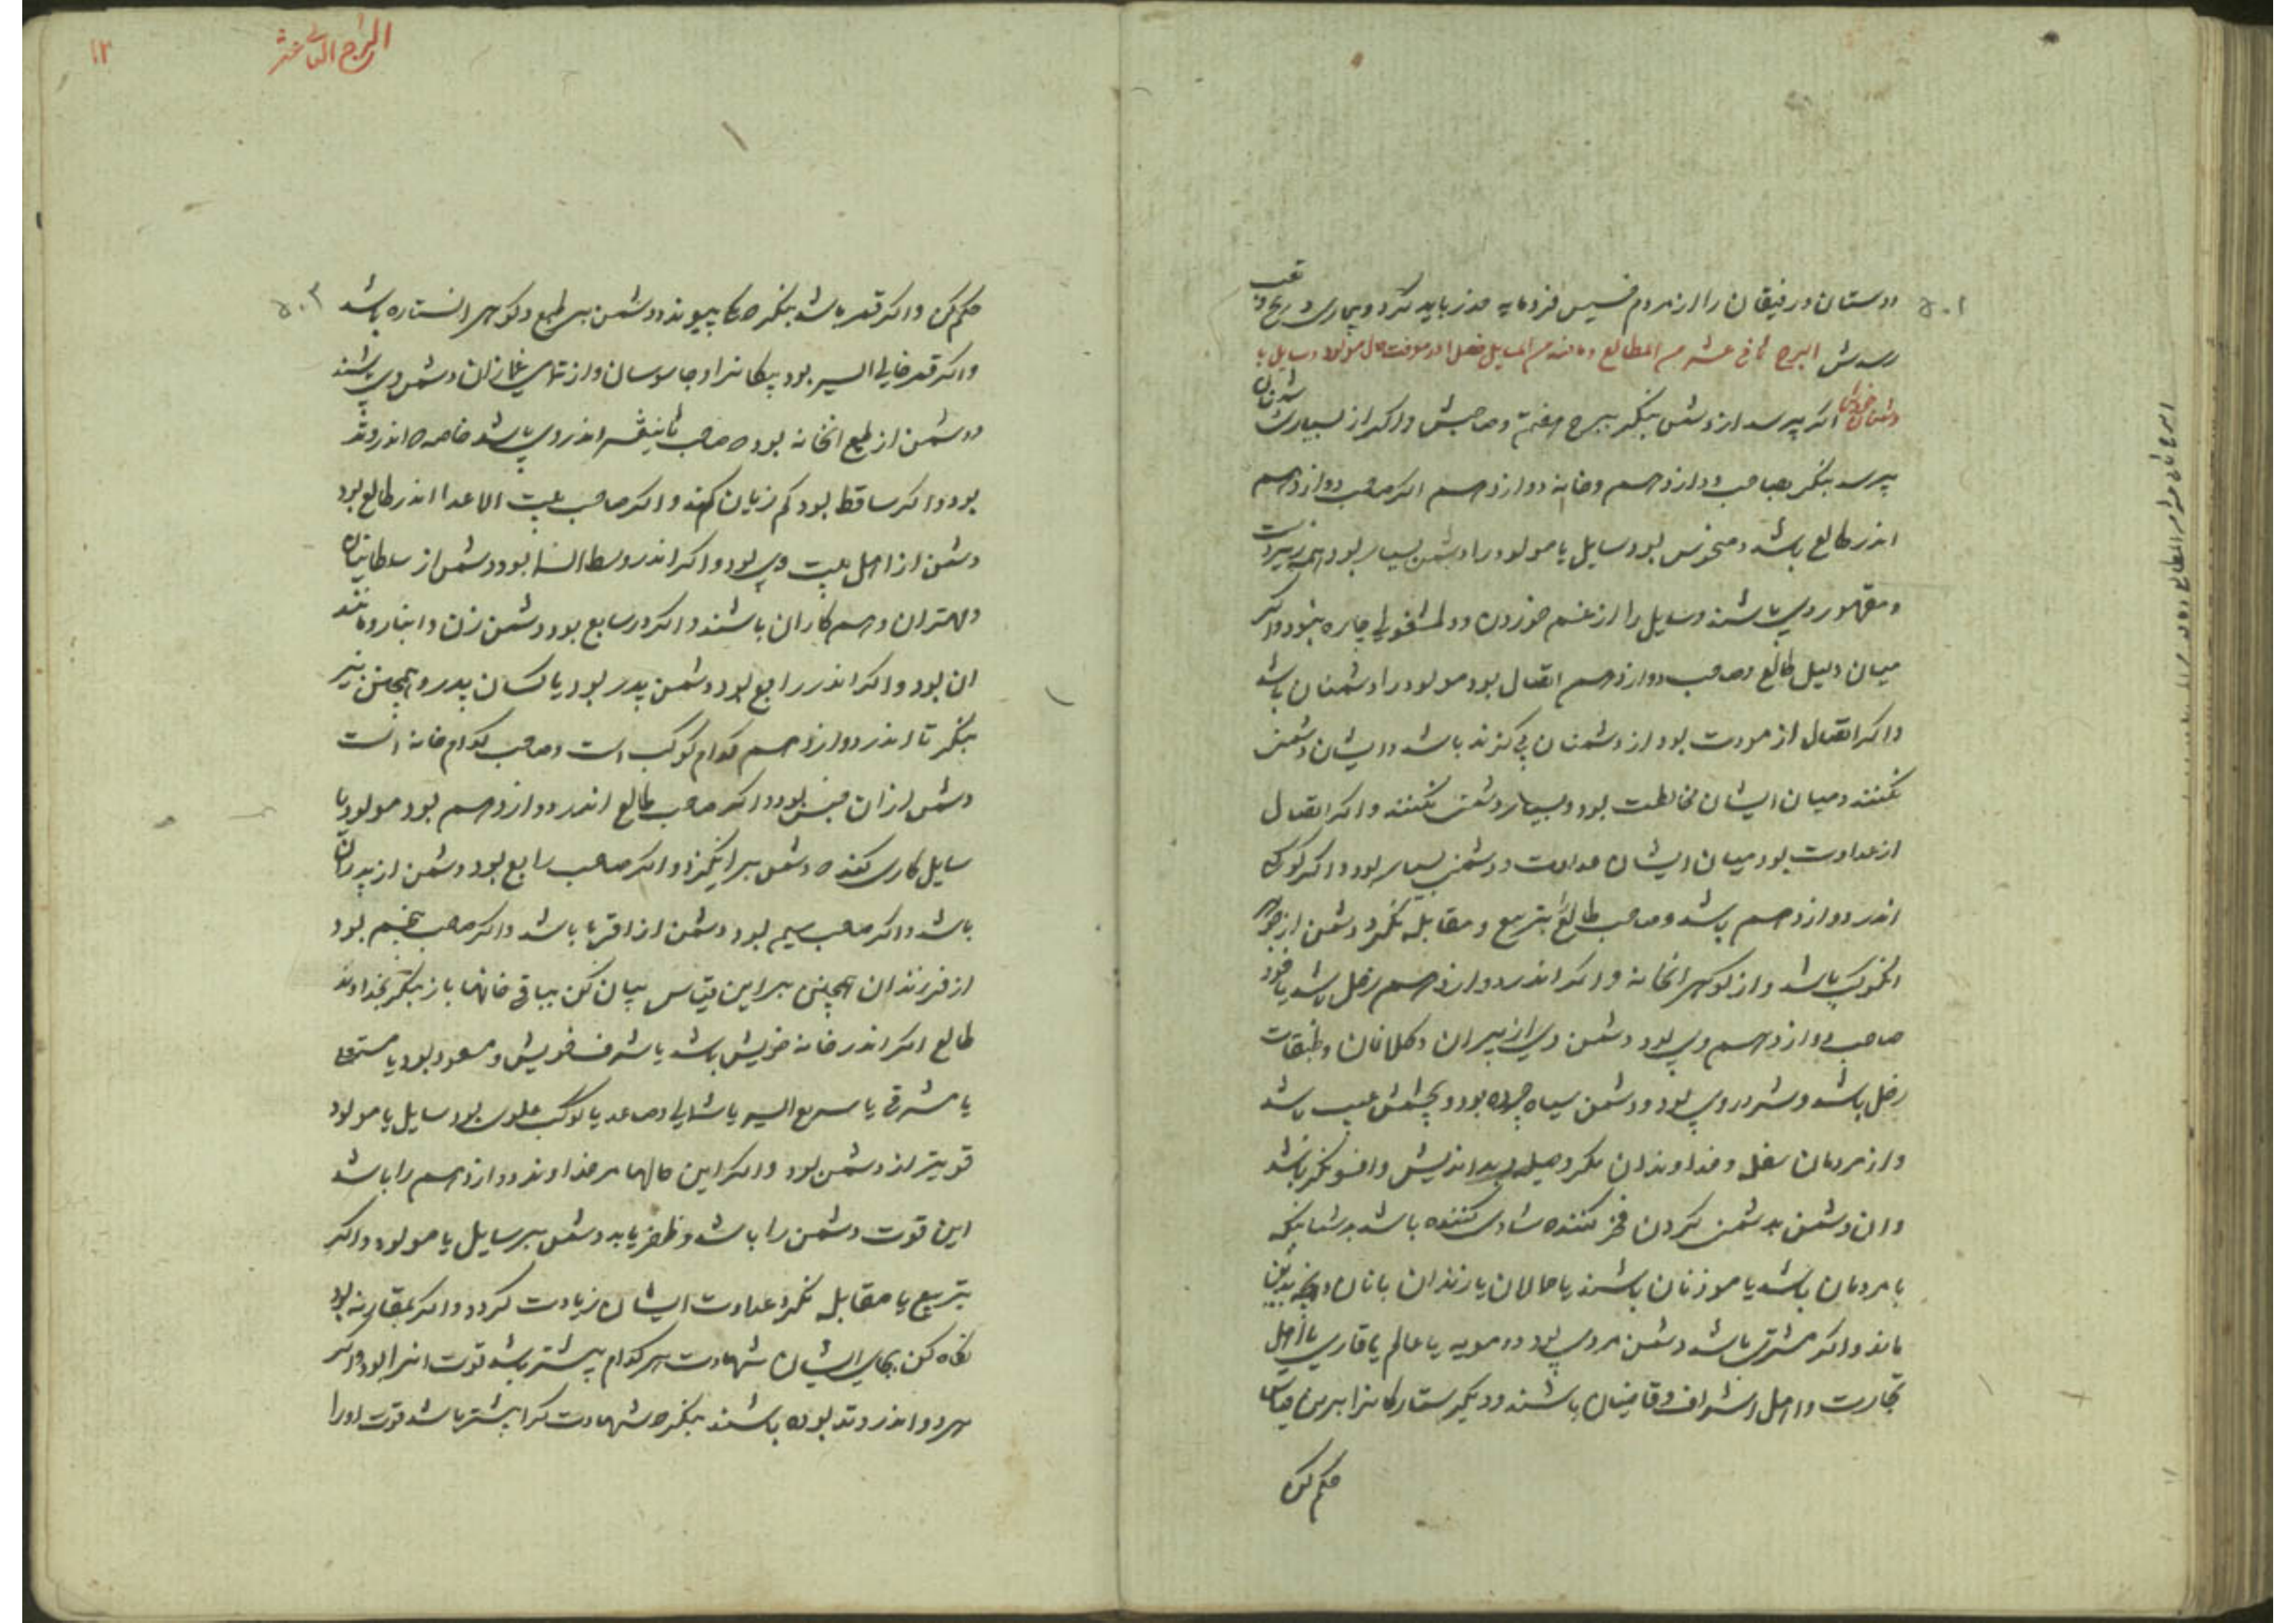 تعب
دوستان و رفیقان را از مردم خسیس فرومایه حذر باید کرد و بیماری و رنج و
رسدش البرج ثانی عشر من المطالع وما فیه من المسایل فصل اندر معرفت حال مولود و سایل با
دشمنان خویش اکر بپرسد از دشمن بنکر ببرج هفتم و صاحبش و اکر از بسیاری دشمنان
بپرسد بنکر بصاحب دوازدهم و خانه دوازدهم اکر صاحب دوازدهم
اندر طالع باشد و منحوس بود سایل یا مولود را دشمن بسیار بود همه زیر دست
و مقهور وی باشند و سایل را از غم خوردن و دلمشغولی چاره نبود و اکر
میان دلیل طالع و صاحب دوازدهم اتصال بود مولود را دشمنان باشد
و اکر اتصال از مودت بود از دشمنان بی کزند باشد و ایشان دشمنی
نکنند و میان ایشان مخالطت بود و بسیار دشمنی نکنند و اکر اتصال
از عداوت بود میان ایشان عداوت و دشمنی بسیار بود و اکر کوکبی
اندر دوازدهم باشد و صاحب طالع بتربیع و مقابله نکرد دشمن از جوهر
انکوکب باشد و از کوهر انخانه و اکر اندر دوازدهم زحل باشد یا خود
صاحب دوازدهم وی بود دشمن وی از پیران و کلانان و طبقات
زحل باشد و شر در وی بود و دشمن سیاه چرده بود و بچشمش عیب باشد
و از مردمان سفله و خداوندان مکر و حیله و بد اندیش و افسونکر باشد
و ان دشمن بدشمنی کردن فخر کننده شادی کننده باشد بدشنامیکه
با مردمان باشد یا موذنان باشند یا حمالان یا زندان بانان و انچه بدین
ماند و اکر مشتری باشد دشمن مردی بود دو مویه یا عالم یا قاری یا اهل
تجارت و اهل اشراف و قاضیان باشند و دیکر ستارکانرا برین قیاس
حکم کن
۵۰۱
البرج الثانی عشر
۱۲
۵۰۲
حکم کن و اکر قمر باشد بنکر تا بکه پیوندد دشمن بر طبع و کوهر انستاره باشد
و اکر قمر خالی السیر بود پیکانرا و جاسوسان و از تمامی غمازان دشمن وی باشند
و دشمن از طبع انخانه بود که صاحب ثانیعشر اندر وی باشد خاصه که اندر وتد
بود و اکر ساقط بود کم زیان کند و اکر صاحب بیت الاعدا اندر طالع بود
دشمن از اهل بیت وی بود و اکر اندر وسط السما بود دشمن از سلطانیان
و مهتران و هم کاران باشند و اکر در سابع بود دشمن زن و انباز و مانند
ان بود و اکر اندر رابع بود دشمن پدر بود یا کسان پدر و همچنین نیز
بنکر تا اندر دوازدهم کدام کوکب است و صاحب کدام خانه است
دشمن از ان جنس بود و اکر صاحب طالع اندر دوازدهم بود مولود یا
سایل کاری کند که دشمن برانکیزد و اکر صاحب رابع بود دشمن از پدران
باشد و اکر صاحب سیم بود دشمن از اقربا باشد و اکر صاحب پنجم بود
از فرزندان همچنین برین قیاس بیان کن بباقی خانها باز بنکر بخداوند
طالع اکر اندر خانه خویش باشد یا شرف خویش و مسعود بود یا مستعلی
یا مشرقی یا سریع السیر یا شمالی و صاعد یا کوکب علوی بود سایل یا مولود
قویتر از دشمن بود و اکر این حالها مر خداوند دوازدهم را باشد
این قوت دشمن را باشد و ظفر یابد دشمن بر سایل یا مولود و اکر
بتربیع یا مقابله نکرد عداوت ایشان زیادت کردد و اکر بمقارنه بود
نکاه کن بجای ایشان شهادت هر کدام بیشتر باشد قوت انرا بود و اکر
هر دو اندر وتد بوده باشند بنکر که شهادت کرا بیشتر باشد قوت او را